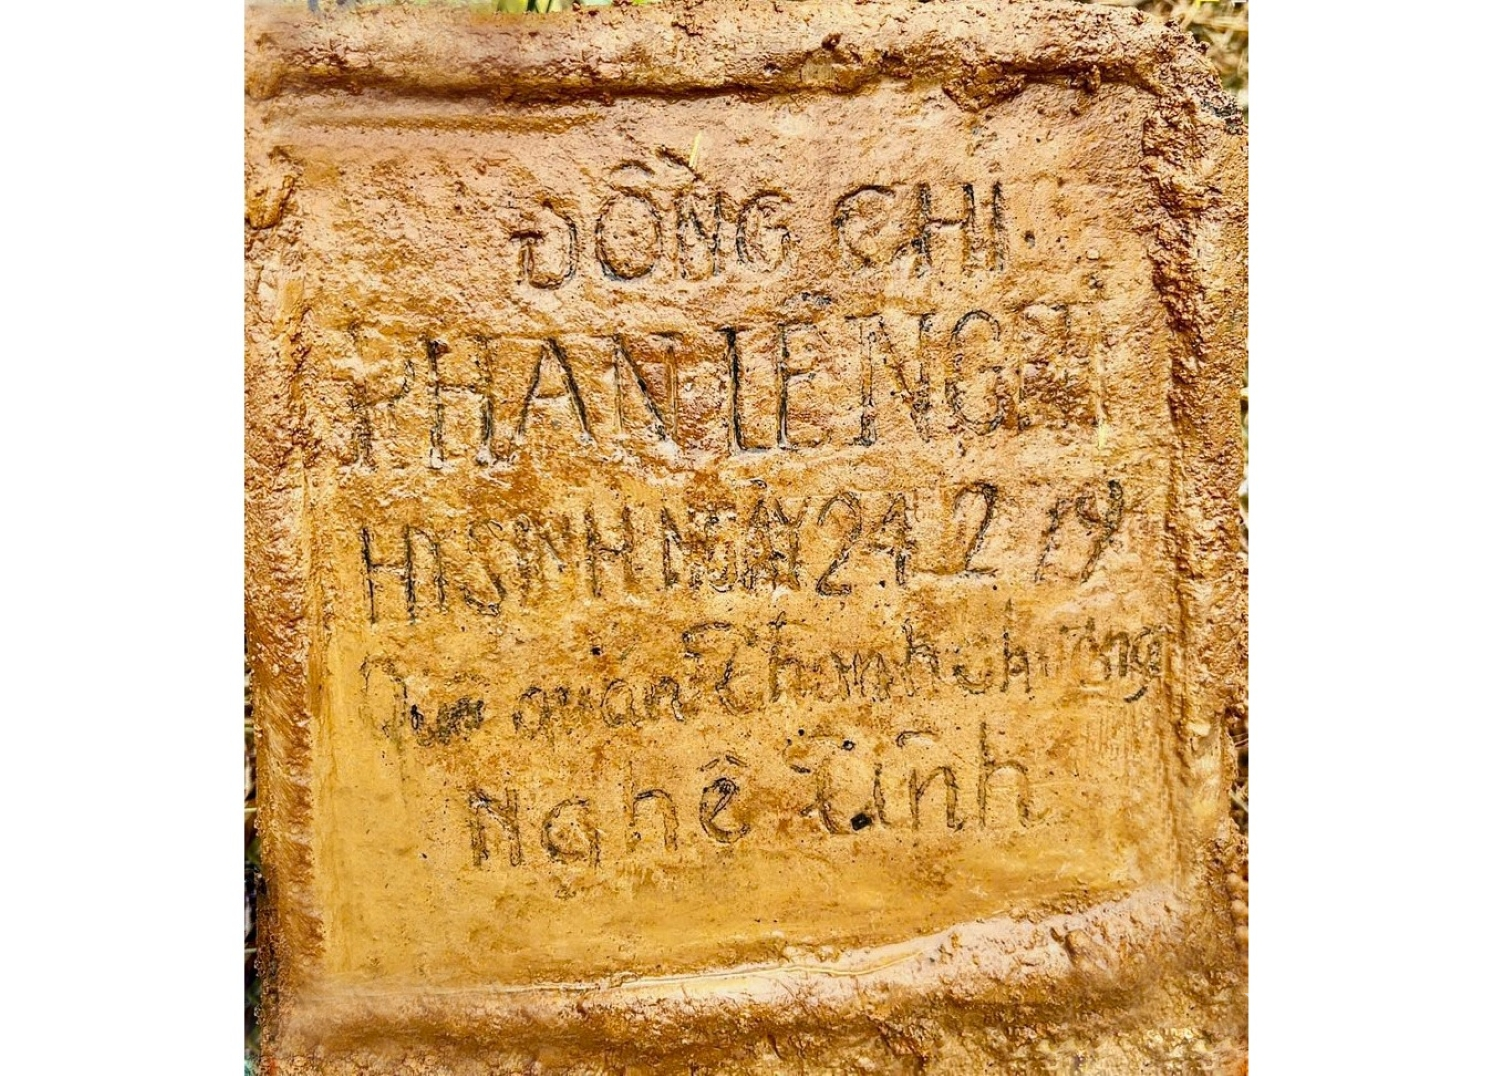 ĐỒNG CHI
PHAN LÊ NGHI
HI SINH NGÀY 24.2 79
quán Thanh chương
Nghệ Tĩnh